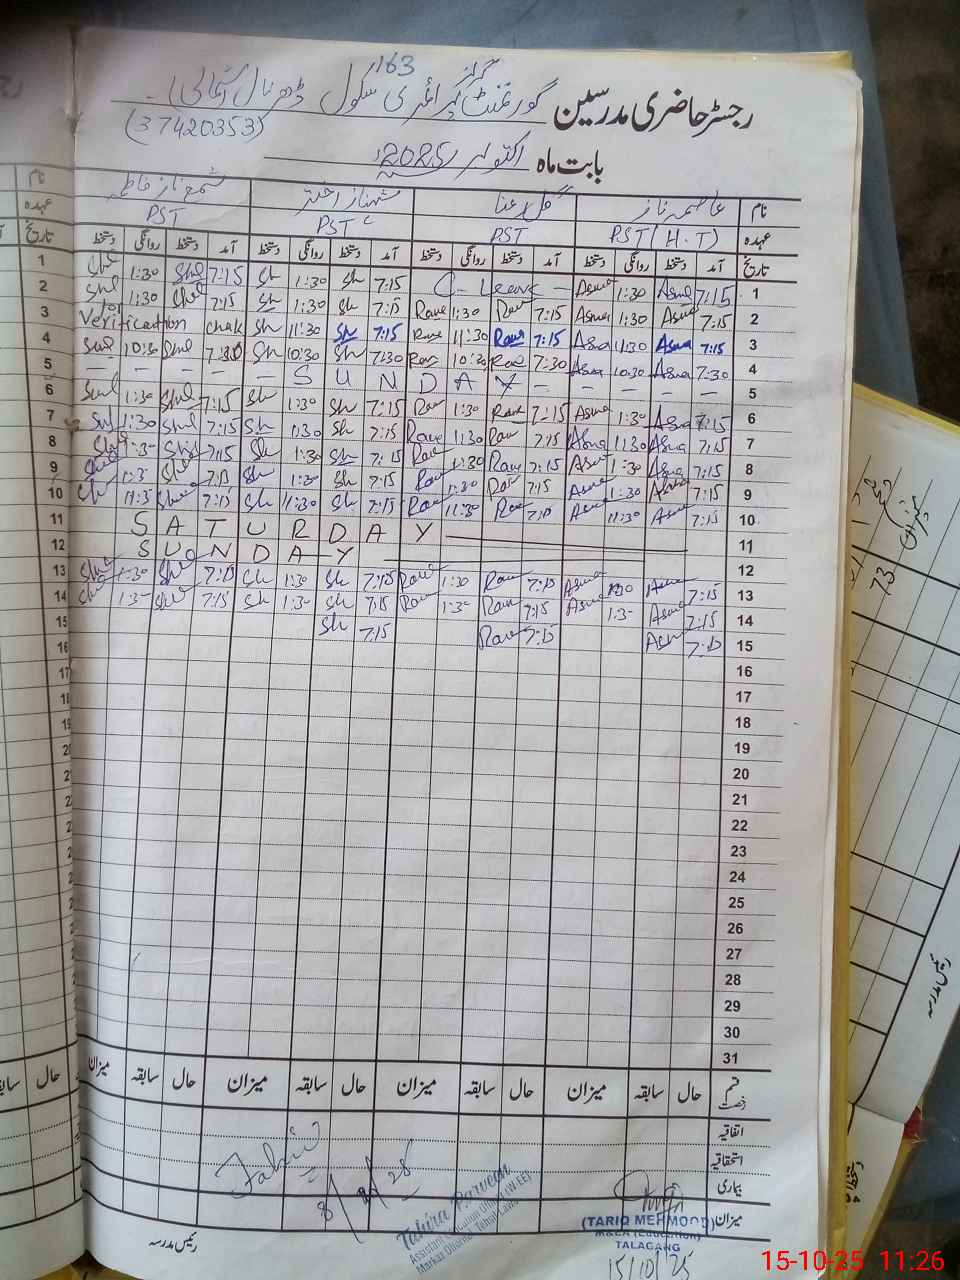 163
رجسٹر حاضری مدرسین گورنمنٹ گرلز پرائمری سکول ڈھرنال شمالی
(37420353)
بابت ماہ اکتوبر 2025ء
نام عاصمہ ناز گل رعنا شہناز اختر شمع ناز فاطمہ
عہدہ PST (H.T) PST PST PST
تاریخ آمد دستخط روانگی دستخط آمد دستخط روانگی دستخط آمد دستخط روانگی دستخط آمد دستخط روانگی دستخط
1 7:15 Asma 1:30 Asma C-Leave 7:15 Sh 1:30 Sh 7:15 1:30
2 7:15 Asma 1:30 Asma 7:15 Raw 1:30 Raw 7:15 Sh 1:30 Sh 7:15 1:30
3 7:15 Asma 11:30 Asma 7:15 Raw 11:30 Raw 7:15 Sh 11:30 Sh for Verification
4 7:30 Asma 10:30 Asma 7:30 Raw 10:30 Raw 7:30 Sh 10:30 Sh 7:30 10:30
5 SUNDAY
6 7:15 Asma 1:30 Asma 7:15 Raw 1:30 Raw 7:15 Sh 1:30 Sh 7:15 1:30
7 7:15 Asma 11:30 Asma 7:15 Raw 11:30 Raw 7:15 Sh 1:30 Sh 7:15 1:30
8 7:15 Asma 1:30 Asma 7:15 Raw 1:30 Raw 7:15 Sh 1:30 Sh 7:15 1:3-
9 7:15 Asma 1:30 Asma 7:15 Raw 1:30 Raw 7:15 Sh 1:30 Sh 7:15 1:3-
10 7:15 Asma 11:30 Asma 7:15 Raw 11:30 Raw 7:15 Sh 11:30 Sh 7:15 11:3-
11 SATURDAY
12 SUNDAY
13 7:15 Asma 1:30 Asma 7:15 Raw 1:30 Raw 7:15 Sh 1:30 Sh 7:15 1:30
14 7:15 Asma 1:3- Asma 7:15 Raw 1:3- Raw 7:15 Sh 1:3- Sh 7:15 1:3-
15 7:15 Asma 7:15 Raw 7:15 Sh
16
17
18
19
20
21
22
23
24
25
26
27
28
29
30
31
قسم رخصت حال سابقہ میزان حال سابقہ میزان حال سابقہ میزان حال سابقہ میزان
اتفاقیہ
استحقاقیہ
بیماری
میزان
رئیس مدرسہ
Tahira Parveen
Assistant Education Officer (W-EE)
(TARIQ MEHMOOD)
M&EA (Education)
TALAGANG
15/10/25
میزان
73
رئیس مدرسہ
15-10-25 11:26